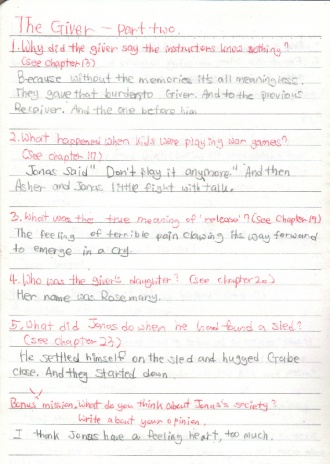 The Giver - part two.
1. Why did the giver say the instructors know nothing?
(see chapter 13)
Because without the memories it's all meaningless.
They gave that burden to Giver. And to the previous
Receiver. And the one before him
2. What happened when kids were playing war games?
(see chapter 17)
Jonas said "Don't play it anymore." And then
Asher and Jonas little fight with talk.
3. What was the true meaning of 'release'? (see Chapter 19)
The feeling of terrible pain clawing its way forward
to emerge in a cry.
4. Who was the giver's daughter? (see chapter 20)
Her name was Rosemary.
5. What did Jonas do when he had found a sled?
(see chapter 23)
He settled himself on the sled and hugged Gabe
close. And they started down.
Bonus mission. What do you think about Jonas's society?
Write about your opinion.
I think Jonas have a feeling heart, too much.